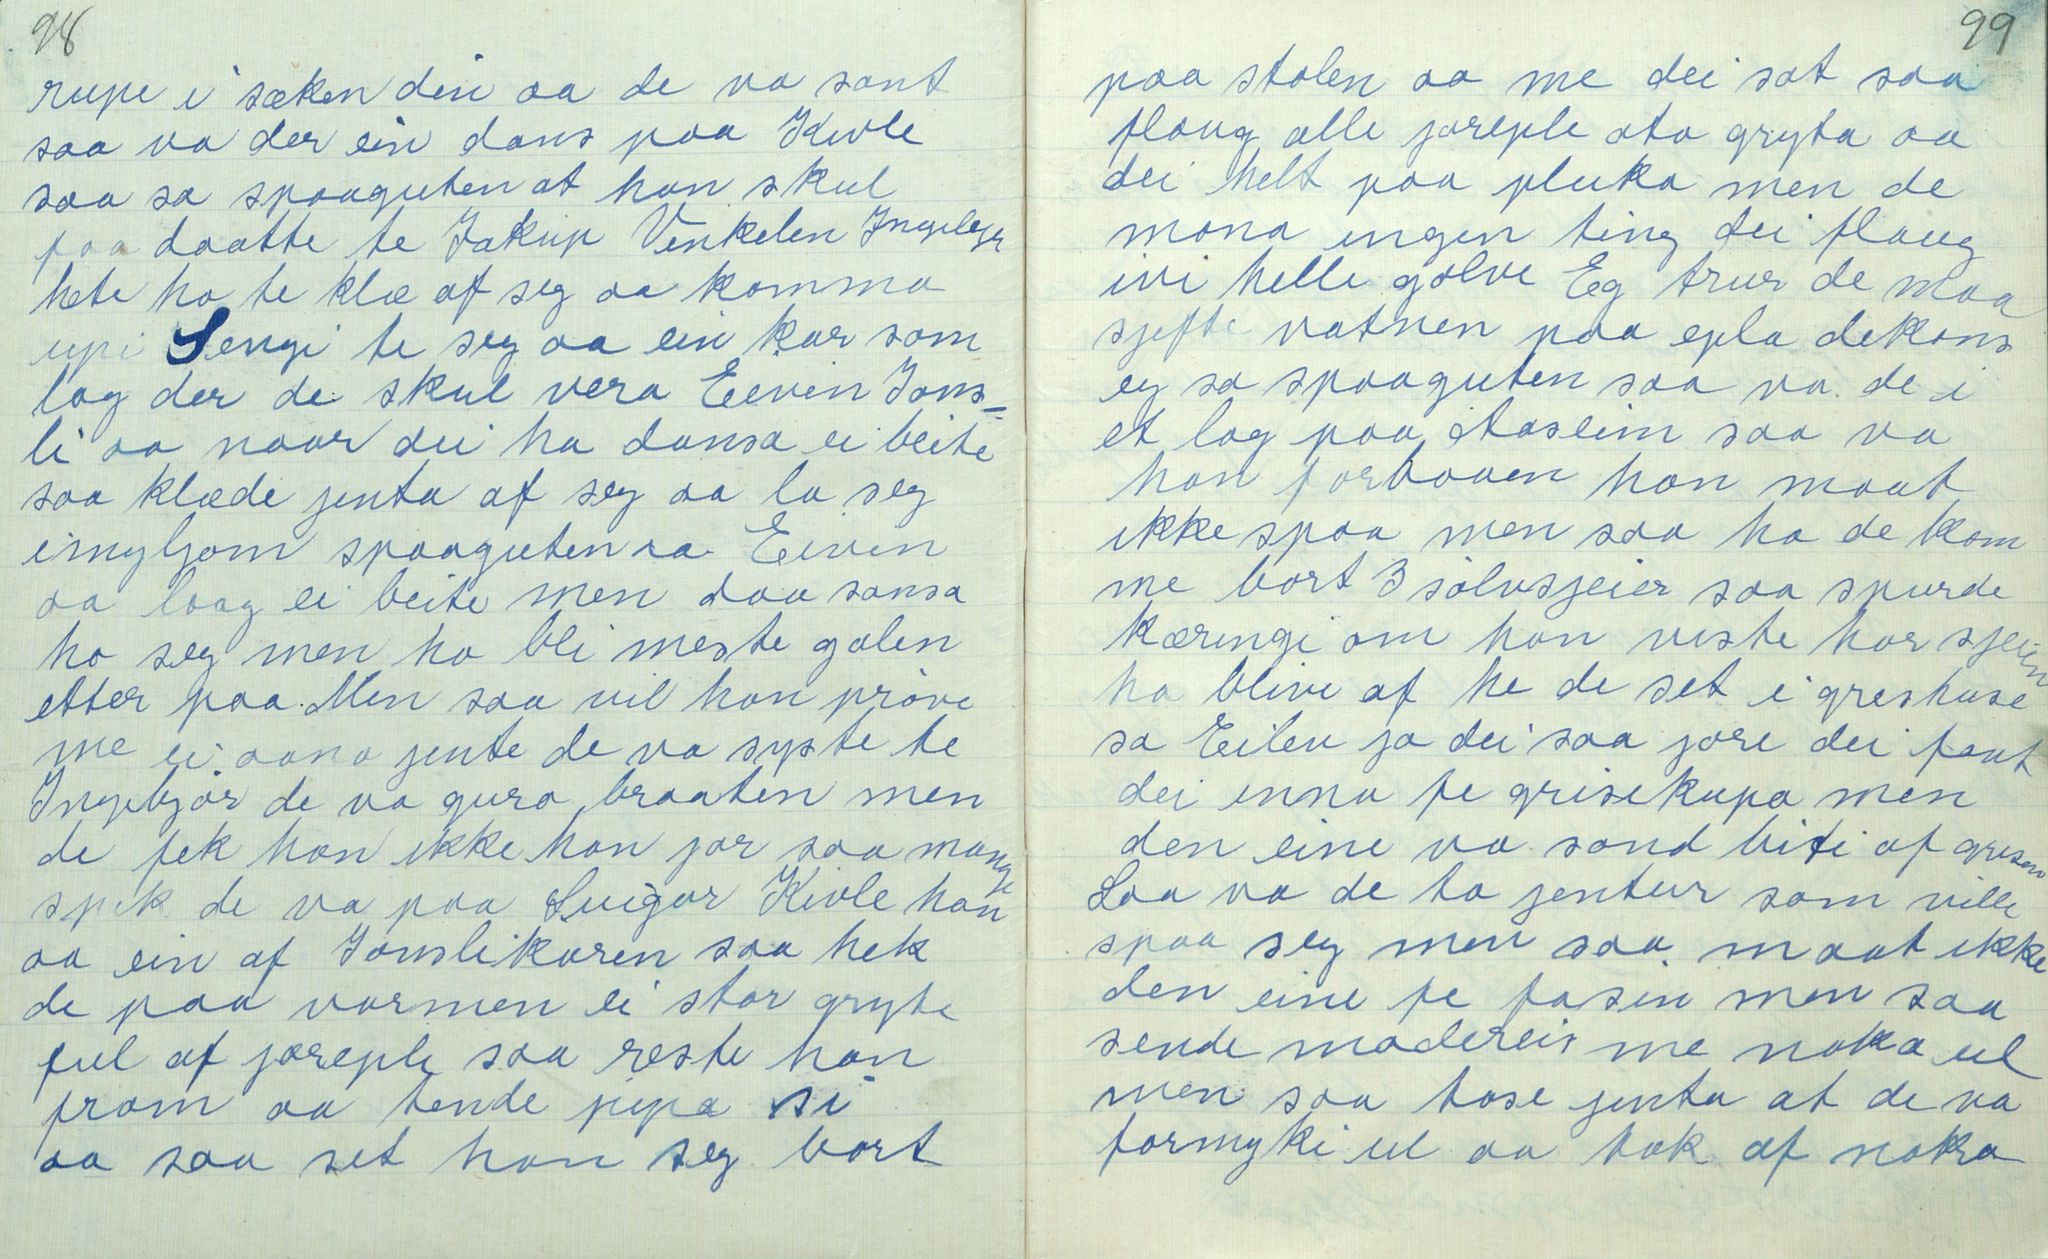 98
rupe i sæken din aa de va sant
saa va der ein dans paa Kivle
saa sa spaaguten at han skul
faa daatte te Jakup Vinkelen Ingebjør
hete ho te klæ af seg aa komma
upi Sengi te seg aa ein kar som
lag der de skul vera Eevin Jons=
li aa naar dei ha dansa ei beite
saa klæde jenta af seg aa la seg
imyljom spaaguten aa Eivin
aa laag ei beite men daa sansa
ho seg men ho bli meste galen
etter paa. Men saa vil han prøve
me ei aana jente de va syste te
Ingebjør de va guro braaten men
de fek han ikke han jor saa mange
spik de va paa Luigar Kivle han
aa ein af Jonslikaren saa hek
de paa varmen ei stor gryte
ful af jøreple saa reste han
fram aa tende pipa si
aa saa set han seg bort
99
paa stolen aa me dei sat saa
floug alle joreple ata gryta aa
dei helt paa pluka men de
mona ingen ting dei floug
ivi helle golve Eg trur de maa
sjefte vatnen paa epla dekans
eg sa spaaguten saa va de i
et lag paa Aaseim saa va
han forbaaen han maat
ikke spaa men saa ha de kom
me bort 3 sølvsjeier saa spurde
kæringi om han viste hor sjeiin
ha blive af he de set i greshuse
sa Eilev ja dei saa jore dei fant
dei inna fe grisekupa men
den eine va sond biti af grisen
Saa va de to jentur som ville
spaa seg men saa maat ikke
den eine fe fasin men saa
sende madereis me noka ul
men saa tose jenta at de va
formyki ul aa tok af nokra